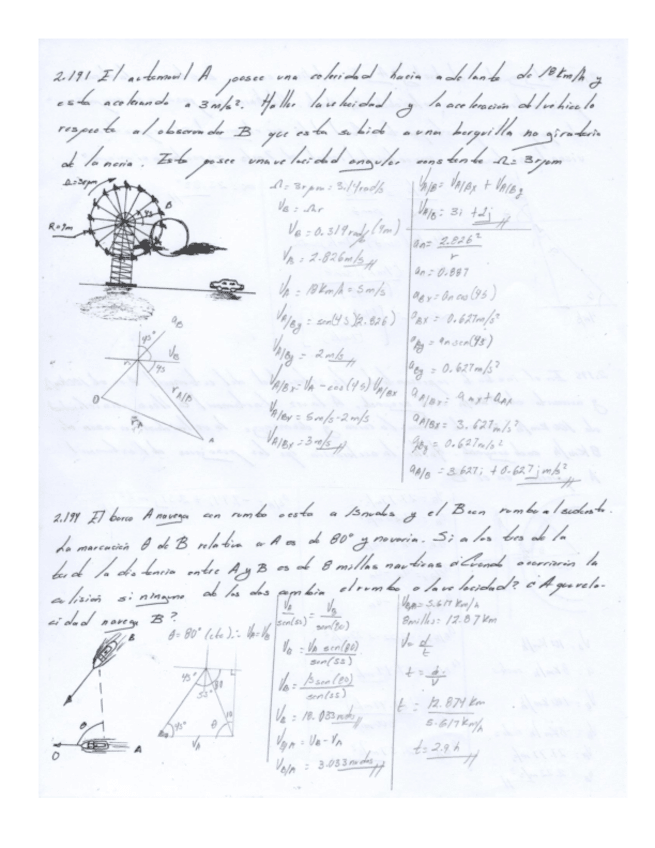 2.191 El automovil A posee una velocidad hacia adelante de 18 Km/h y
esta acelerando a 3 m/s². Hallar la velocidad y la aceleracion del vehiculo
respecto al observador B que esta subido a una barquilla no giratoria
de la noria. Esta posee una velocidad angular constante Ω = 3rpm
Ω=3rpm
R=9m
45
B
a_B
45°
V_B
45
r_A/B
O
r_A
A
Ω = 3rpm = 3.14 rad/s
V_B = Ωr
V_B = 0.314 rad/s (9m)
V_B = 2.826 m/s
V_A = 18 Km/h = 5 m/s
V_A/By = sen(45)(2.826)
V_A/By = 2 m/s
V_A/Bx = V_A - cos(45) V_A/Bx
V_A/Bx = 5m/s - 2m/s
V_A/Bx = 3 m/s
V_A/B = V_A/Bx + V_A/By
V_A/B = 3i + 2j
an = 2.826² / r
an = 0.887
a_Bx = an cos(45)
a_Bx = 0.627 m/s²
a_By = an sen(45)
a_By = 0.627 m/s²
a_A/Bx = a_nx + a_Ax
a_A/Bx = 3.627 m/s²
a_By = 0.627 m/s²
a_A/B = 3.627i + 0.627j m/s²
2.194 El barco A navega con rumbo oeste a 15 nudos y el B con rumbo al sudoeste.
La marcación θ de B relativa a A es de 80° y no varia. Si a las tres de la
tarde la distancia entre A y B es de 8 millas nauticas ¿Cuando ocurriran la
colisión si ninguno de los dos cambia el rumbo o la velocidad? ¿A que velo-
cidad navega B?
B
θ
O
A
θ = 80° (cte) ∴
45°
55°
45°
θ
V_A
V_A / sen(55) = V_B / sen(80)
V_B = V_A sen(80) / sen(55)
V_B = 15 sen(80) / sen(55)
V_B = 18.033 nudos
V_B/A = V_B - V_A
V_B/A = 3.033 nudos
V_B/A = 5.617 Km/h
8 millas = 12.87 Km
V = d/t
t = d/V
t = 12.874 Km / 5.617 Km/h
t = 2.9 h